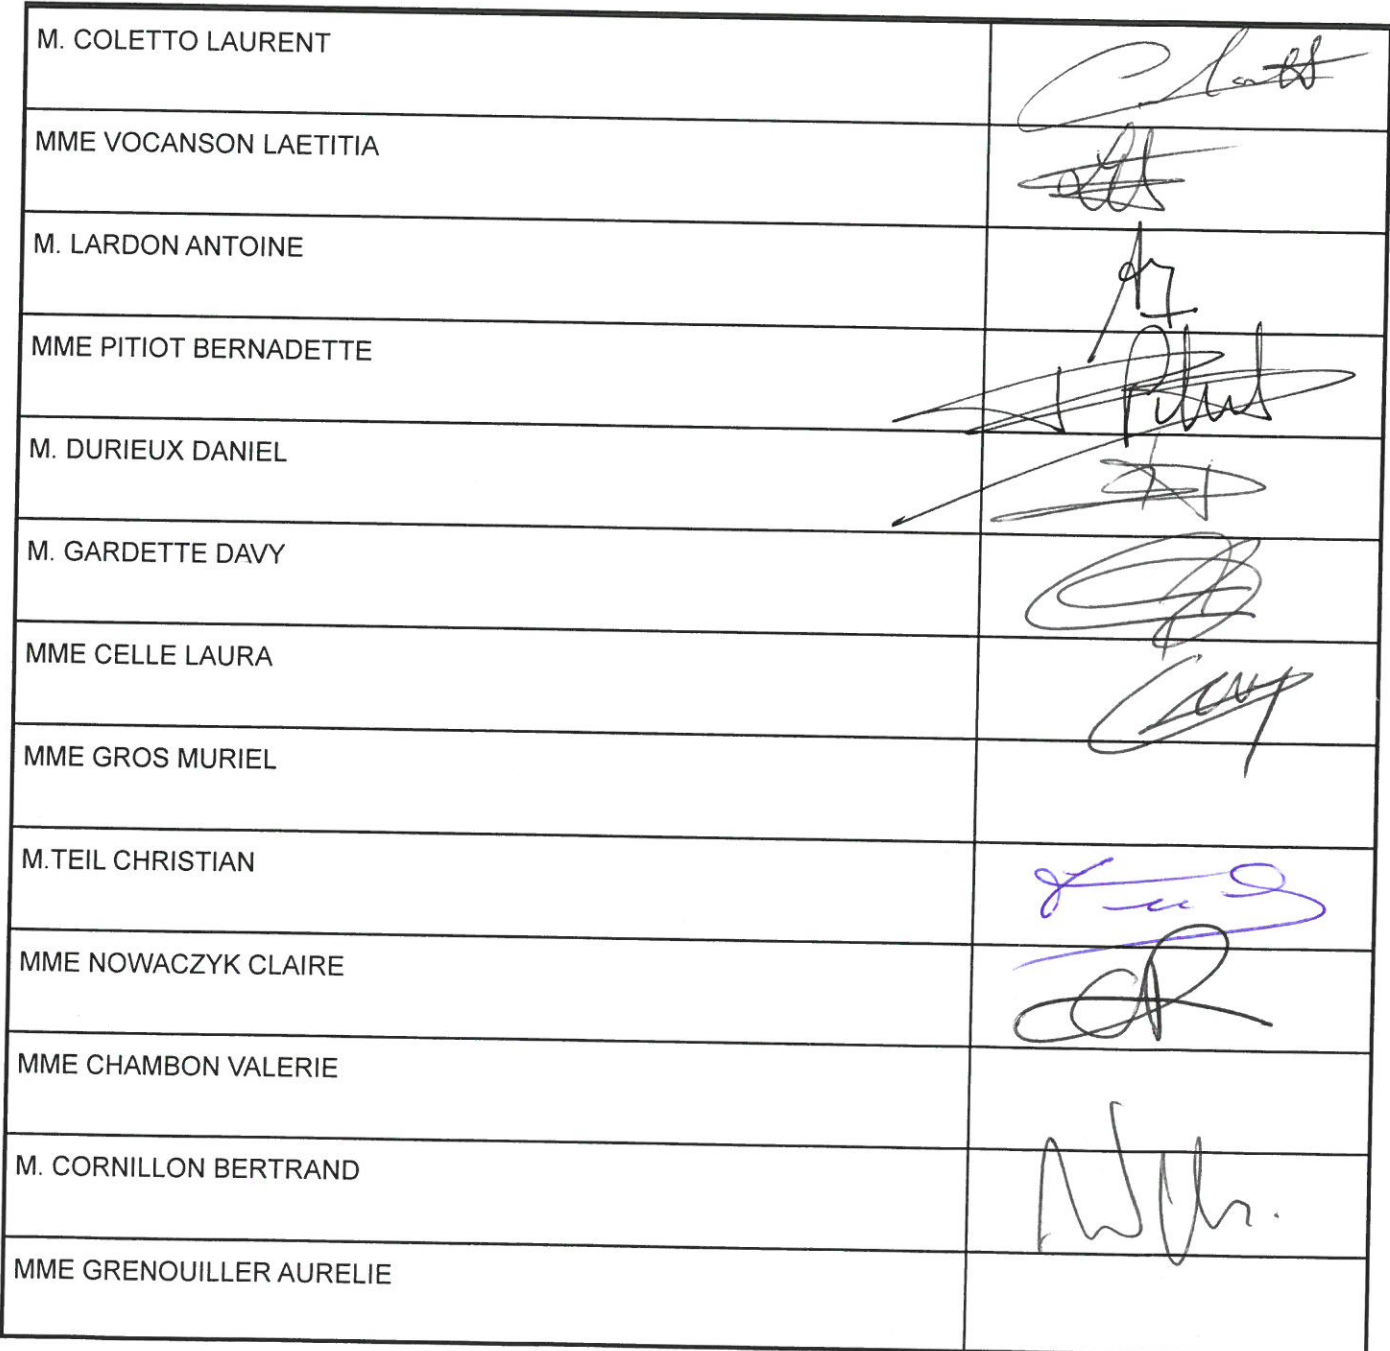 M. COLETTO LAURENT
MME VOCANSON LAETITIA
M. LARDON ANTOINE
MME PITIOT BERNADETTE
M. DURIEUX DANIEL
M. GARDETTE DAVY
MME CELLE LAURA
MME GROS MURIEL
M.TEIL CHRISTIAN
MME NOWACZYK CLAIRE
MME CHAMBON VALERIE
M. CORNILLON BERTRAND
MME GRENOUILLER AURELIE